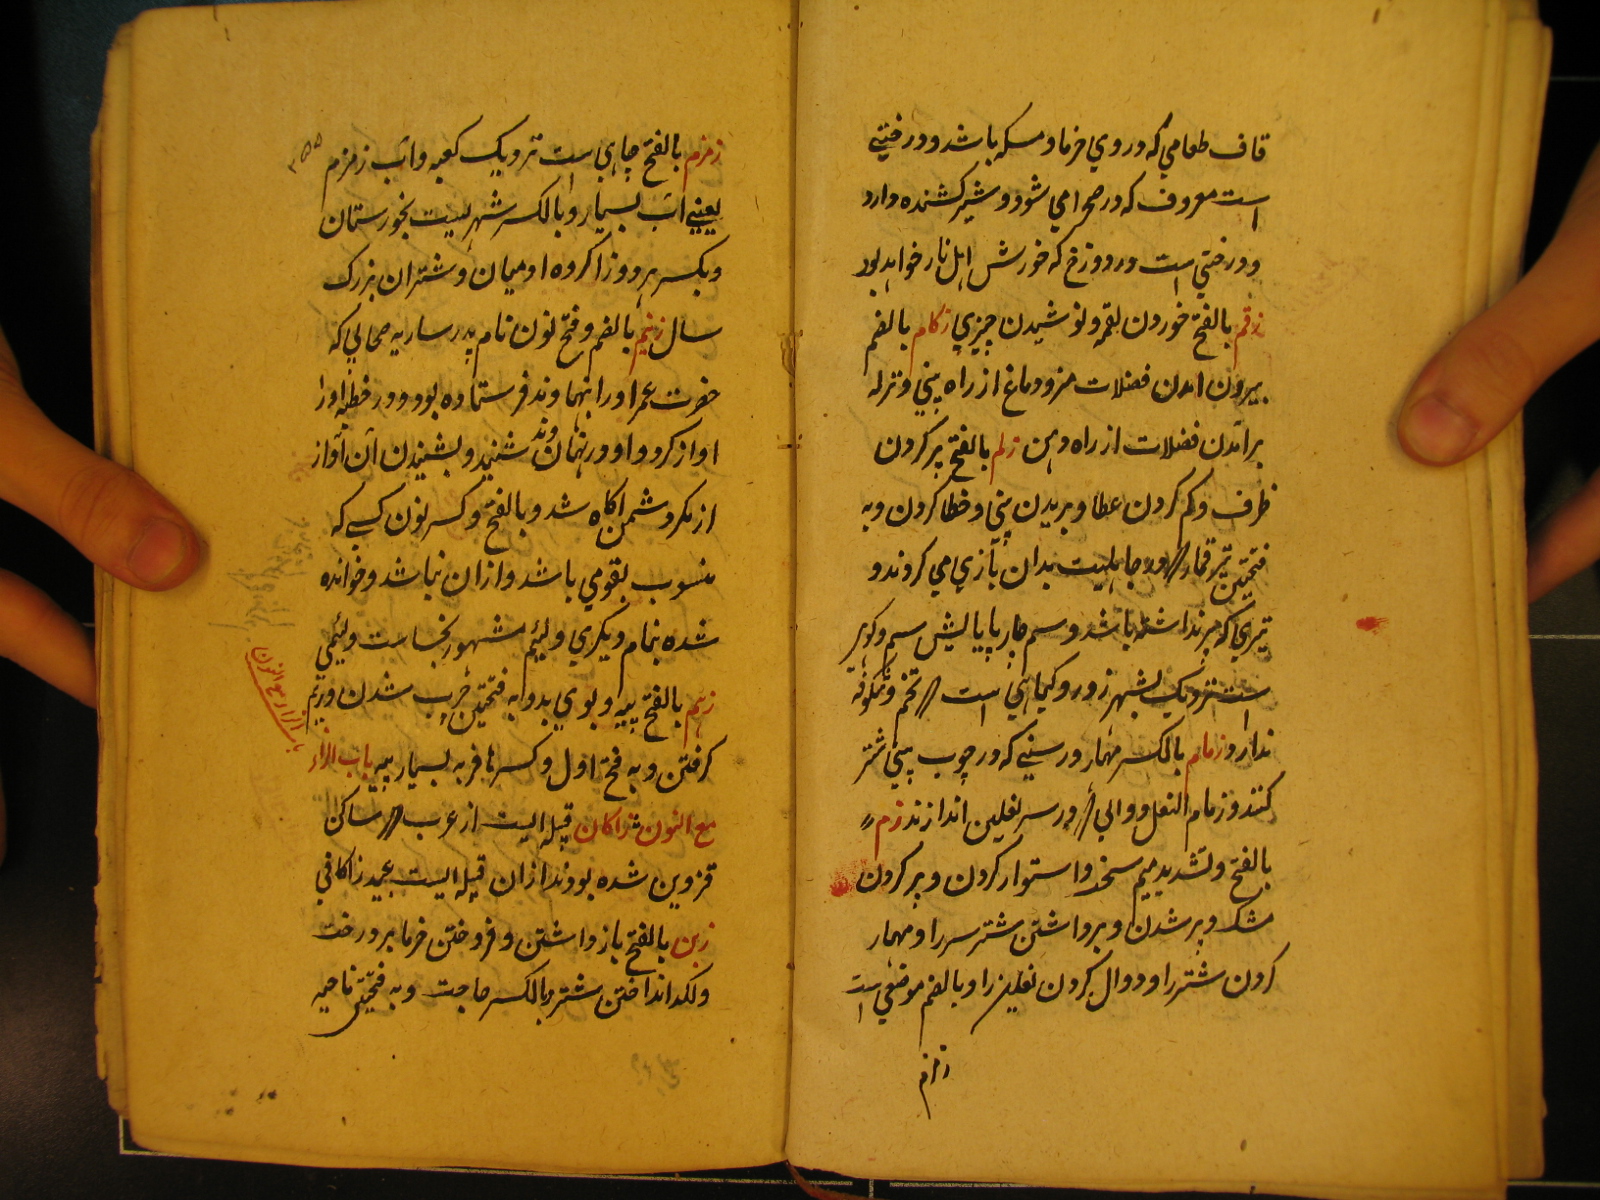 قاف طعامي که در وي خرما و مسکه باشد و درختيے
است معروف که در صحرا مي شود و شير کشنده دارد
و درختي است در دوزخ که خورش اهل نار خواهد بود
زقم بالفتح خوردن لقمه و نوشيدن چيزي زکام بالضم
بيرون امدن فضلات مغز و دماغ از راه بيني و نزله
برامدن فضلات از راه دهن زلم بالفتح پر کردن
ظرف و کم کردن عطا و بريدن بيني و خطا کردن و به
فتحتين تير قمار که در جاهليت بدان بازي مي کردند و
تيري که پر نداشته باشد و سم چارپا يا پاليش سم و کوهي
است نزديک بشهر زور و کياهي است که تخم و شکوفه
ندارد زمام بالکسر مهار و رسنيے که در چوب بيني شتر
کنند و زمام النعل دوالي که در سر نعلين اندازند زم
بالفتح و تشديد ميم سخت و استوار کردن و پر کردن
مشک و پر شدن و برداشتن شتر سر را و مهار
کردن شتر را و دوال کردن نعلين را و بالضم موضعي است
زمزم
زمزم بالفتح چاهي است نزديک کعبه و اب زمزم
يعنيے اب بسيار و بالکسر شهريست بخورستان
و بکسر هر دو زا کروه ادميان و شتران بزرک
سال زنيم بالضم و فتح نون نام پدر ساريه صحابي که
حضرت عمر او را بنهاوند فرستاده بود و در خطبه او را
اواز کرد و او در نهاوند شنيد و بشنيدن آن آواز
از مکر دشمن اکاه شد و بالفتح و کسر نون کسے که
منسوب بقومي باشد و ازان نباشد و خوانده
شده بنام ديکري و لئيم مشهور بخساست و لئيمي
زهم بالفتح پيه و بوي بد و به فتحتين چرب شدن و
کرفتن و به فتح اول و کسر ها فربه بسيار پيه باب الزاء
مع النون زاکان قبيله ايست از عرب که ساکن
قزوين شده بودند ازان قبيله ايست عبيد زاکاني
زبن بالفتح باز داشتن و فروختن خرما بر درخت
و لکد انداختن شتر و بالکسر حاجت و به فتحتين ناحيه
باب الزاء مع النون